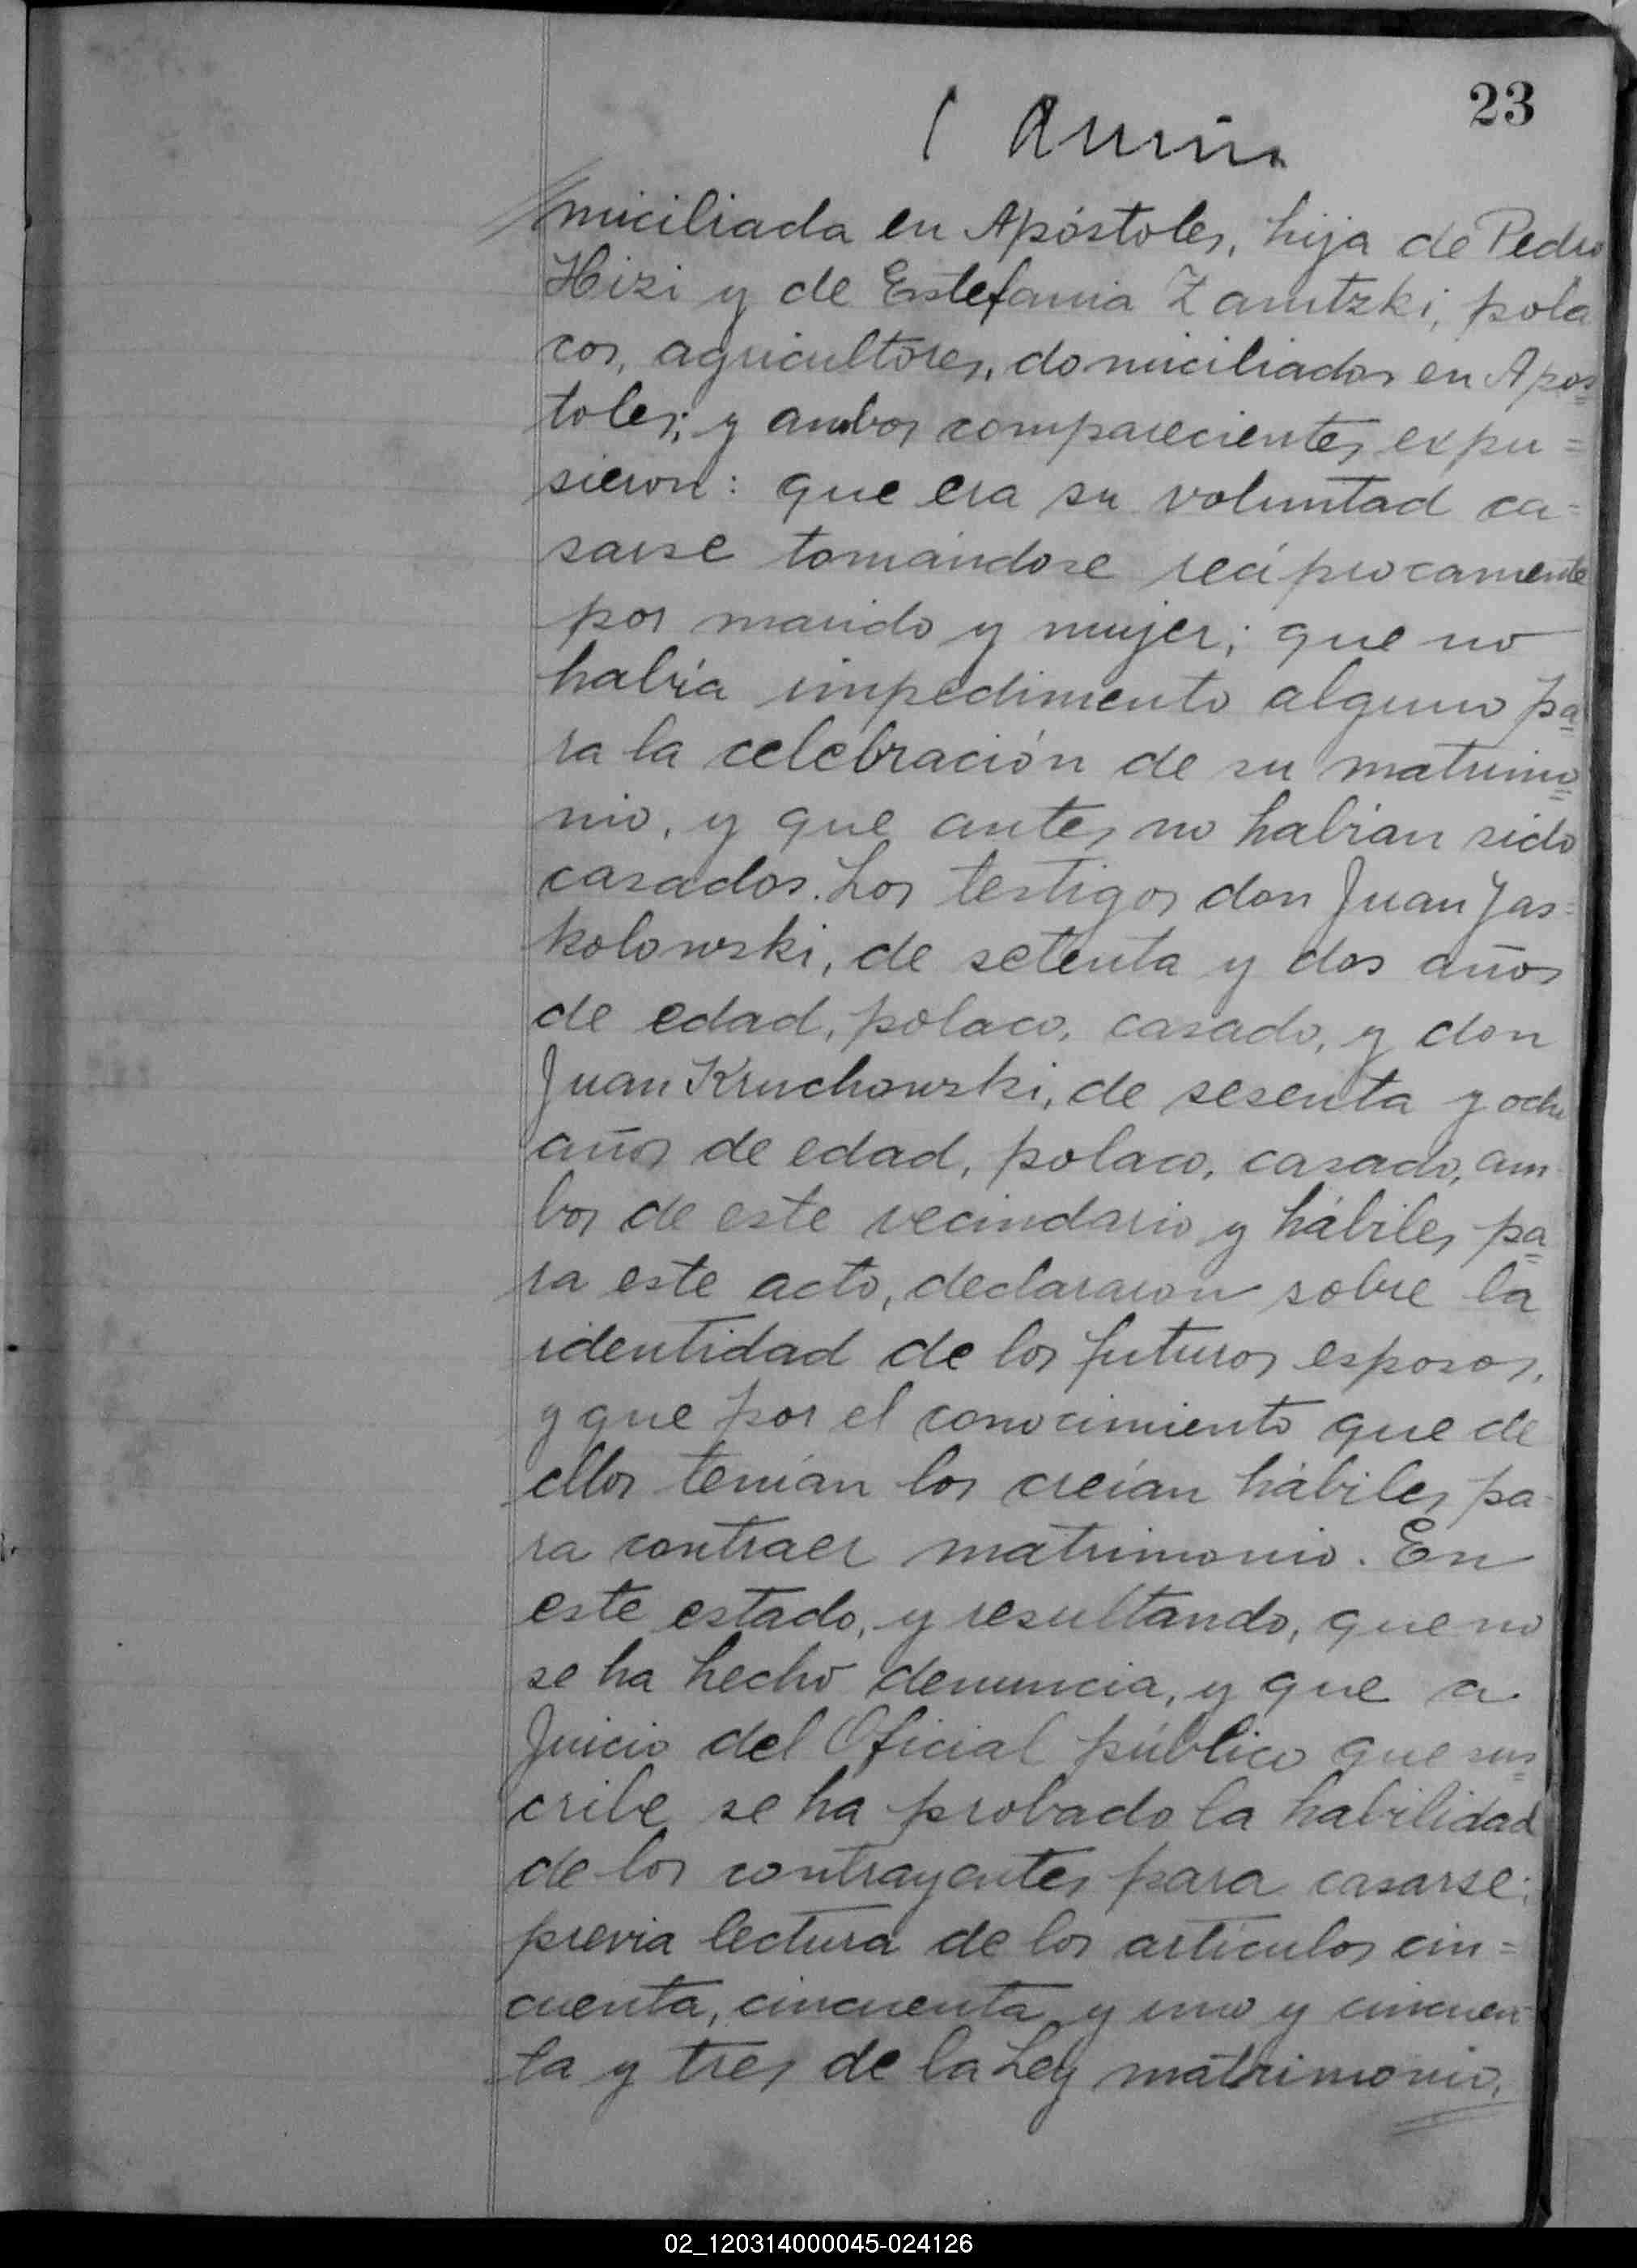 23
miciliada en Apóstoles, hija de Pedro
Hizi y de Estefania Zarutzki, pola
cos, agricultores, domiciliados en Apos
toles; y ambos comparecientes expu=
sieron: que era su voluntad ca=
sarse tomándose recíprocamente
por marido y mujer; que no
había impedimento alguno pa
ra la celebración de su matrimo
nio, y que antes no habian sido
casados. Los testigos don Juan Jas=
kolowski, de setenta y dos años
de edad, polaco, casado, y don
Juan Kruchowski, de sesenta y ocho
años de edad, polaco, casado, am
bos de este vecindario y hábiles pa
ra este acto, declararon sobre la
identidad de los futuros esposos,
y que por el conocimiento que de
ellos tenían los creían hábiles pa-
ra contraer matrimonio. En
este estado, y resultando, que no
se ha hecho denuncia, y que a
Juicio del Oficial público que sus
cribe se ha probado la habilidad
de los contrayentes para casarse;
previa lectura de los artículos cin=
cuenta, cincuenta y uno y cincuen
ta y tres de la Ley matrimonio,
02_120314000045-024126